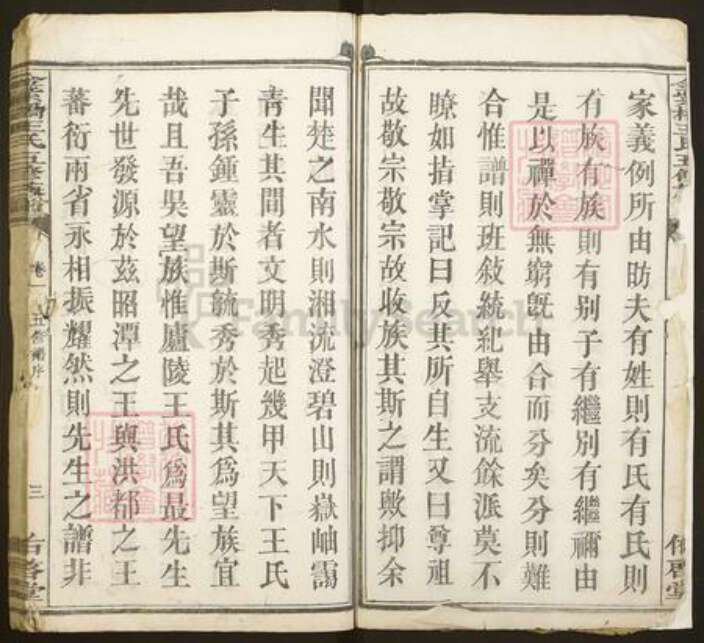 家義例所由昉夫有姓則有氏有氏則
有族有族則有别子有繼別有繼禰由
是以禪於無窮旣由合而分矣分則難
合惟譜則班敍統紀舉支流餘派莫不
瞭如指掌記曰反其所自生又曰尊祖
故敬宗敬宗故收族其斯之謂歟抑余
聞楚之南水則湘流澄碧山則嶽岫靄
靑生其間者文明秀起幾甲天下王氏
子孫鍾靈於斯毓秀於斯其爲望族宜
哉且吾吳望族惟廬陵王氏爲最先生
先世發源於茲昭潭之王與洪都之王
蕃衍兩省永相振耀然則先生之譜非
卷一
三
FamilySearch